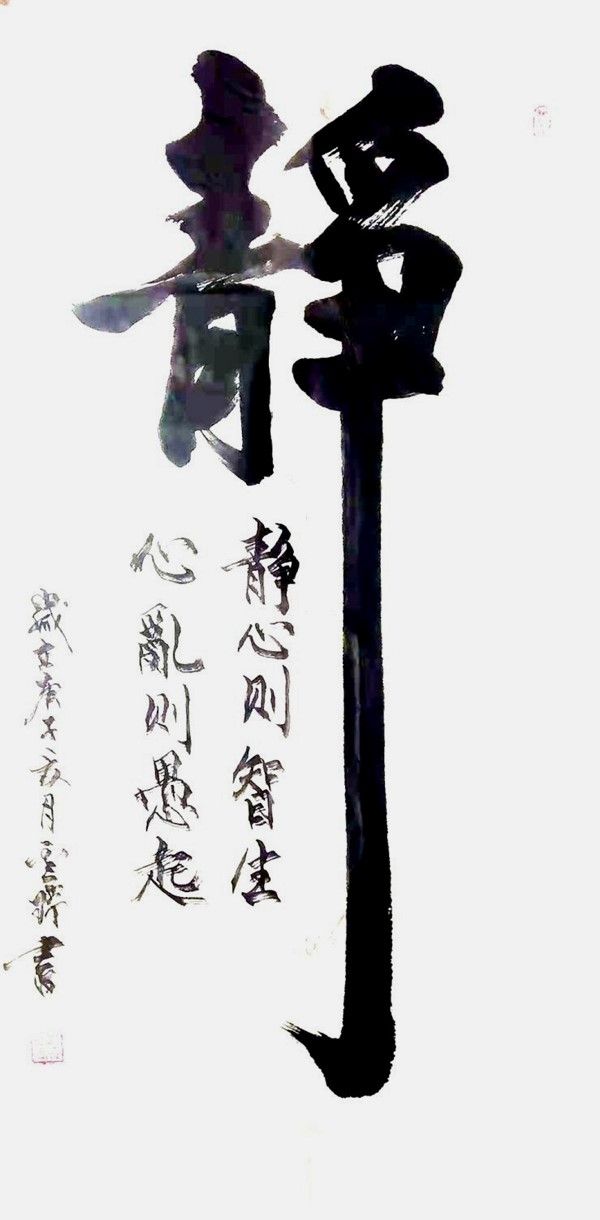 静
静心则智生
心亂则愚起
歲在庚子亥月 書